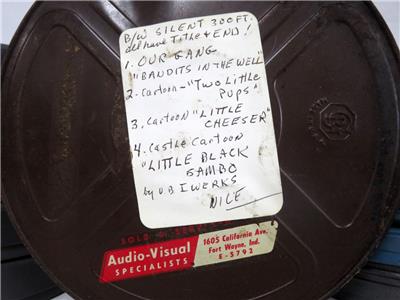 B/W SILENT 300 FT.
all have Title & END!
1. OUR GANG
"BANDITS IN THE WELL"
2. Cartoon - "Two Little
Pups"
3. Cartoon "LITTLE
CHEESER"
4. Castle Cartoon
"LITTLE BLACK
SAMBO
by U.B. IWERKS
NICE
SOLD & SERV
Audio-Visual
SPECIALISTS
1605 California Ave.
Fort Wayne, Ind.
E-3792